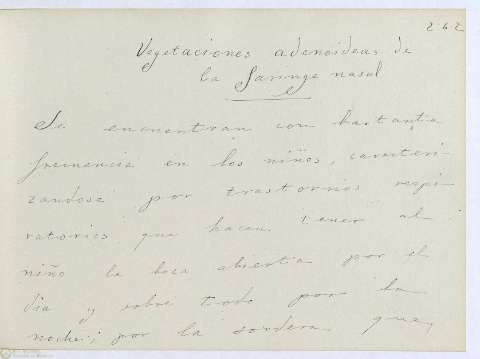 262
Vegetaciones adenoideas de
la Faringe nasal
Se encuentran con bastante
frecuencia en los niños, caracteri-
zandose por trastornos respi-
ratorios que hacen tener al
niño la boca abierta por el
dia y sobre todo por la
noche; por la sordera que,